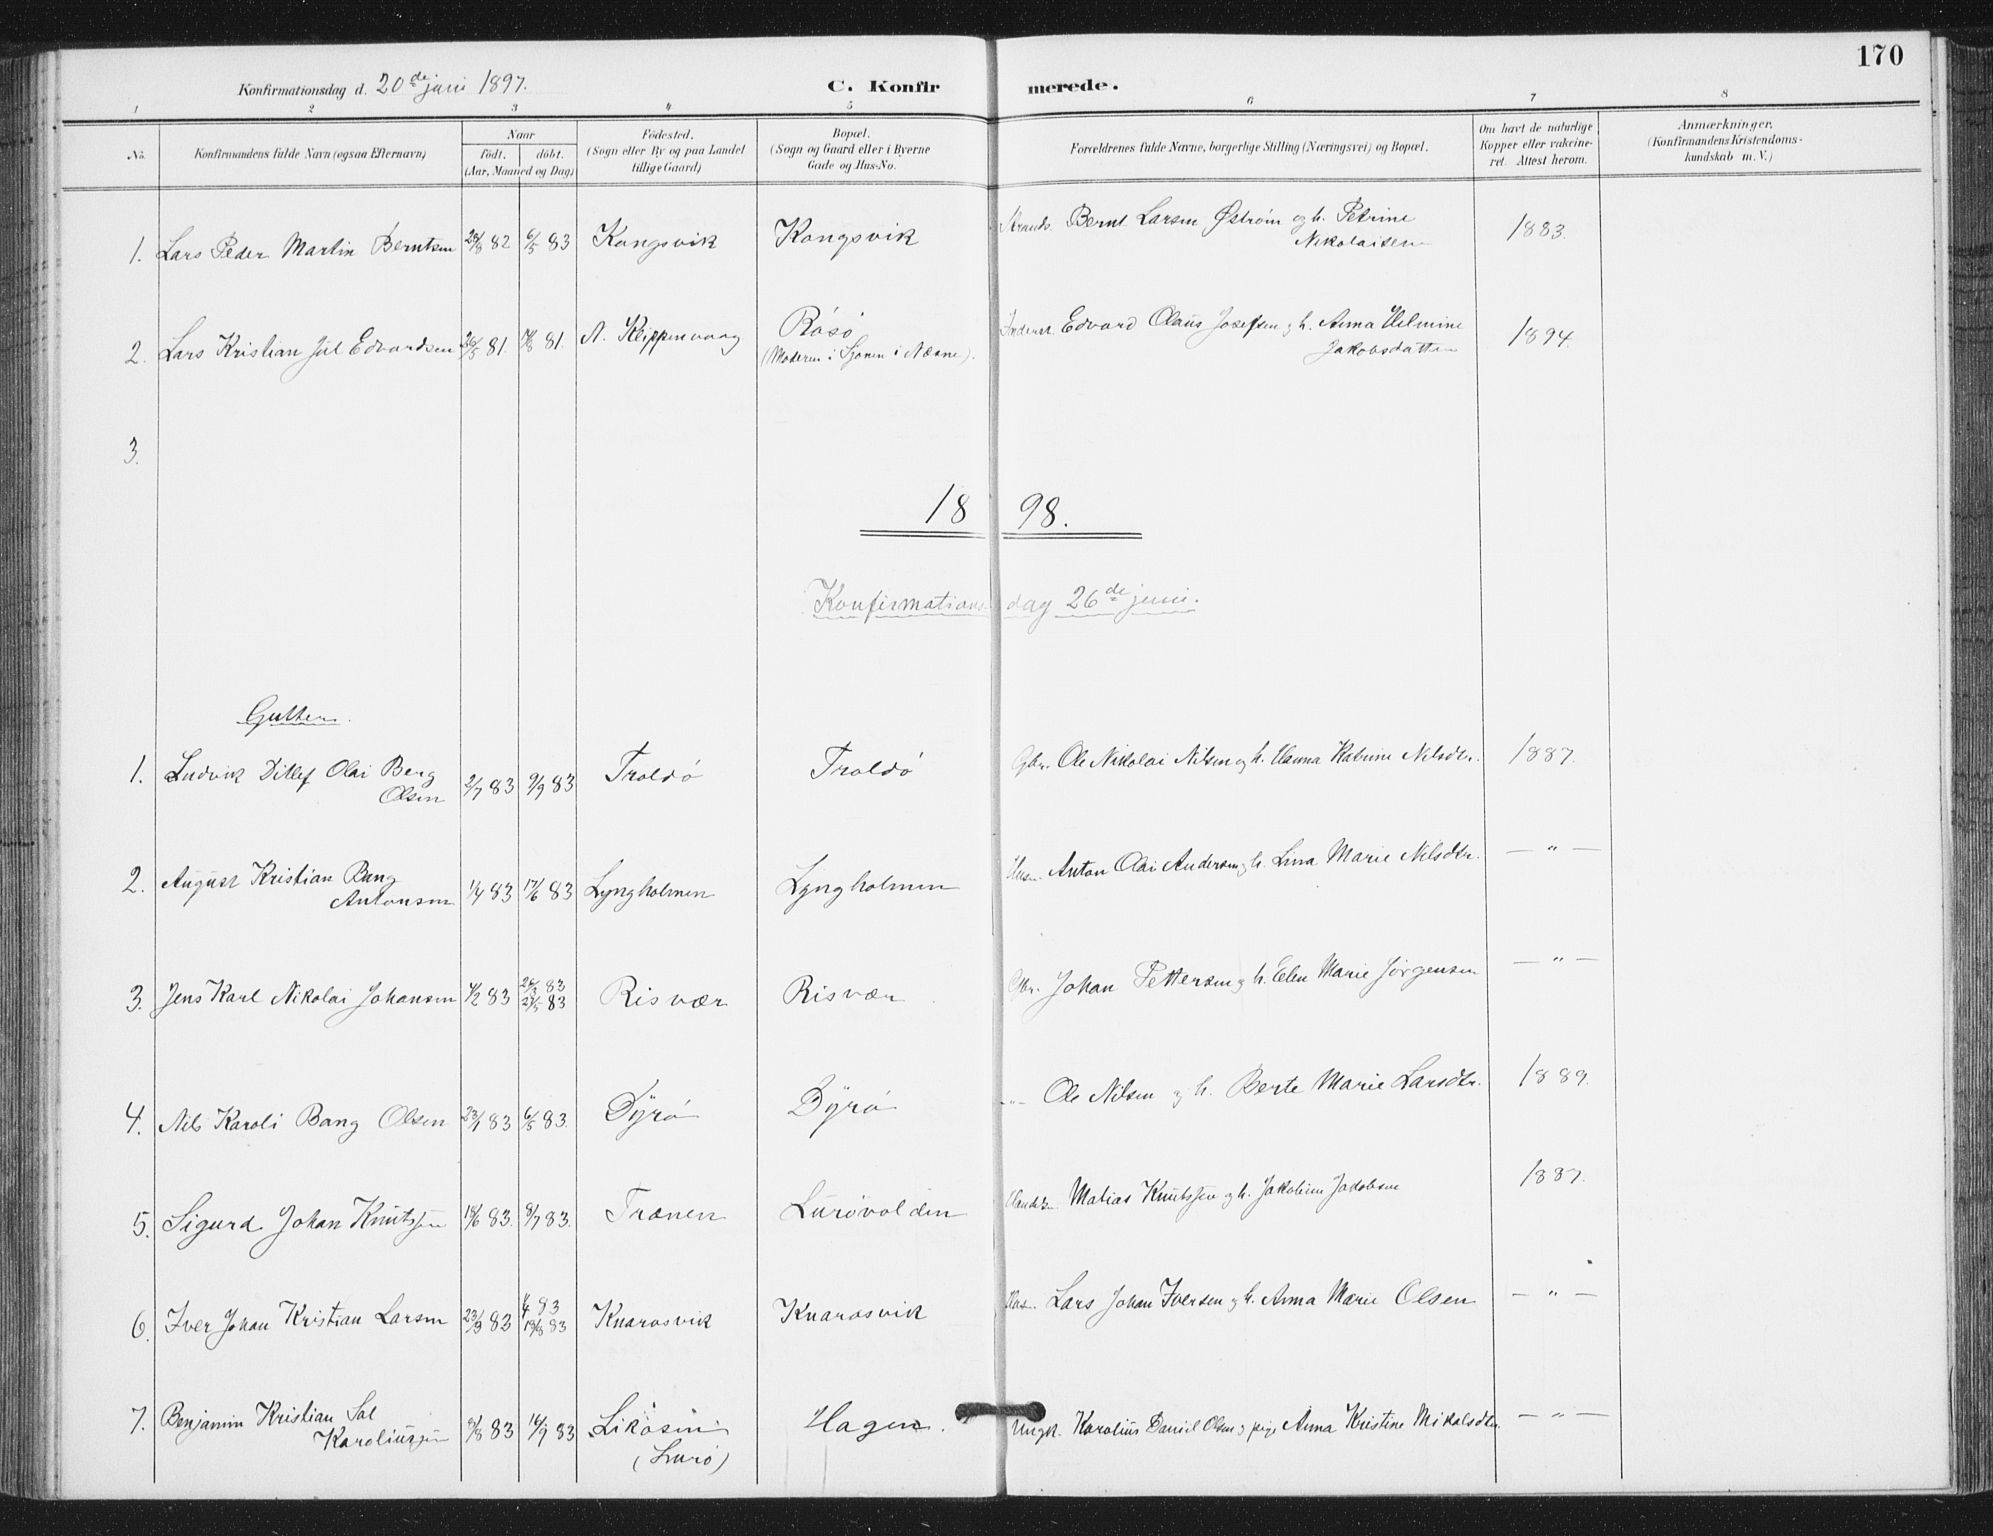 170
Konfirmationsdag d. 20de juni 1897.
C. Konfirmerede.
1 2 3 4 5 6 7 8
No.
Konfirmandens fulde Navn (ogsaa Efternavn)
Naar
födt. döbt.
(Aar, Maaned og Dag)
Födested.
(Sogn eller By og paa Landet
tillige Gaard)
Bopæl.
(Sogn og Gaard eller i Byerne
Gade og Hus-No.
Forældrenes fulde Navne, borgerlige Stilling (Næringsvei) og Bopæl.
Om havt de naturlige
Kopper eller vakcine-
ret. Attest herom.
Anmærkninger.
(Konfirmandens Kristendoms-
kundskab m. V.)
1. Lars Peder Martin Berntsen 82 6/5 83 Kongsvik Kongsvik Strands. Bernt Larsen Østrøm og h. Petrine
Nikolaisen
1883.
2. Lars Kristian Jul Edvardsen 81. 81. N. Klippenvaag Rósó
(Moderen i Sjonen i Næsne).
Edvard Olaus Josefsen og h. Anna Helmine
Jakobsdatter
1894.
3.
1898.
Konfirmationsdag 26de juni.
Gutter.
1. Ludvik Ditlef Olai Berg
Olsen
2/7 83 9/9 83 Troldö Troldö Gbr. Ole Nikolai Nilsen og h. Hanna Katrine Nilsdtr. 1887.
2. August Kristian Bang
Antonsen
1/4 83 17/6 83 Lyngholmen Lyngholmen Husm. Anton Olai Andersen og h. Lina Marie Nilsdtr. — " —
3. Jens Karl Nikolai Johansen 1/2 83 26/3 83
27/5 83
Risvær Risvær Gbr. Johan Pettersen og h. Elen Marie Jörgensen — " —
4. Nils Karoli Bang Olsen 23/1 83 6/5 83. Dyrö Dyrö — " — Ole Nilsen og h. Berte Marie Larsdtr. 1889.
5. Sigurd Johan Knutssen 18/6 83. 8/7 83. Trænen Lurövolden Matias Knutssen og h. Jakobine Jakobsen 1887.
6. Iver Johan Kristian Larsen 82 83
19/8 83
Knarosvik Knarosvik Hus. Lars Johan Iversen og h. Anna Marie Olsen — " —
7. Benjamin Kristian Sal
Karoliussen
9/8 83 16/9 83 Likösin
(Lurö)
Hagen. Ungk. Karolius Daniel Olsen og pige Anna Kristine Mikalsdtr. — " —